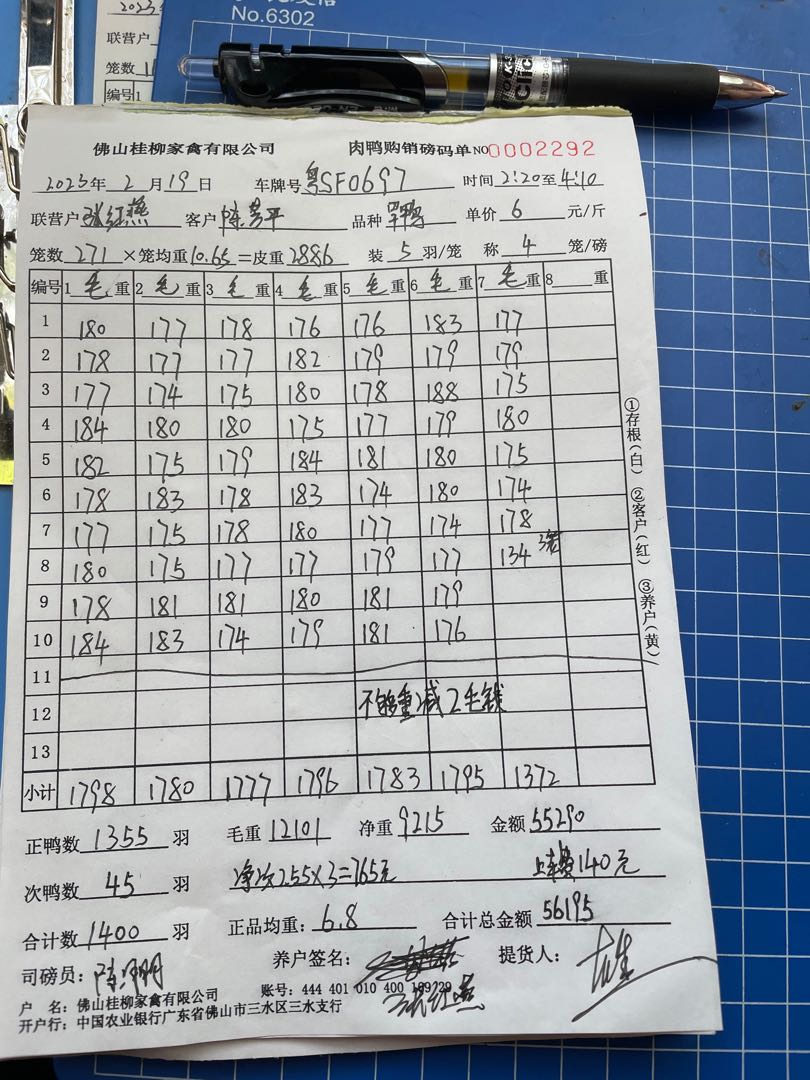 No.6302
2023年
联营户
笼数
编号1
佛山桂柳家禽有限公司 肉鸭购销磅码单 NO 0002292
2023年 2月19日 车牌号 粤SF0697 时间 2:20至4:10
联营户 张红燕 客户 陈 平 品种 单价 6 元/斤
笼数 271 ×笼均重 10.65 =皮重 2886 装 5 羽/笼 称 4 笼/磅
编号 1 毛 重 2 毛 重 3 毛 重 4 毛 重 5 毛 重 6 毛 重 7 毛 重 8 重
1 180 177 178 176 176 183 177
2 178 177 177 182 179 179 179
3 177 174 175 180 178 188 175
4 184 180 180 175 177 179 180
5 182 175 179 184 181 180 175
6 178 183 178 183 174 180 174
7 177 175 178 180 177 174 178
8 180 175 177 177 179 177 134 3笼
9 178 181 181 180 181 179
10 184 183 174 179 181 176
11
12 不够重减2毛钱
13
小计 1798 1780 1777 1796 1783 1795 1372
①存根(白) ②客户(红) ③养户(黄)
正鸭数 1355 羽 毛重 12101 净重 9215 金额 55290
次鸭数 45 羽 净次255×3=765元 上车费140元
合计数 1400 羽 正品均重: 6.8 合计总金额 56195
司磅员: 养户签名: 张红燕 提货人:
户 名: 佛山桂柳家禽有限公司 账号: 444 401 010 400 189
开户行: 中国农业银行广东省佛山市三水区三水支行